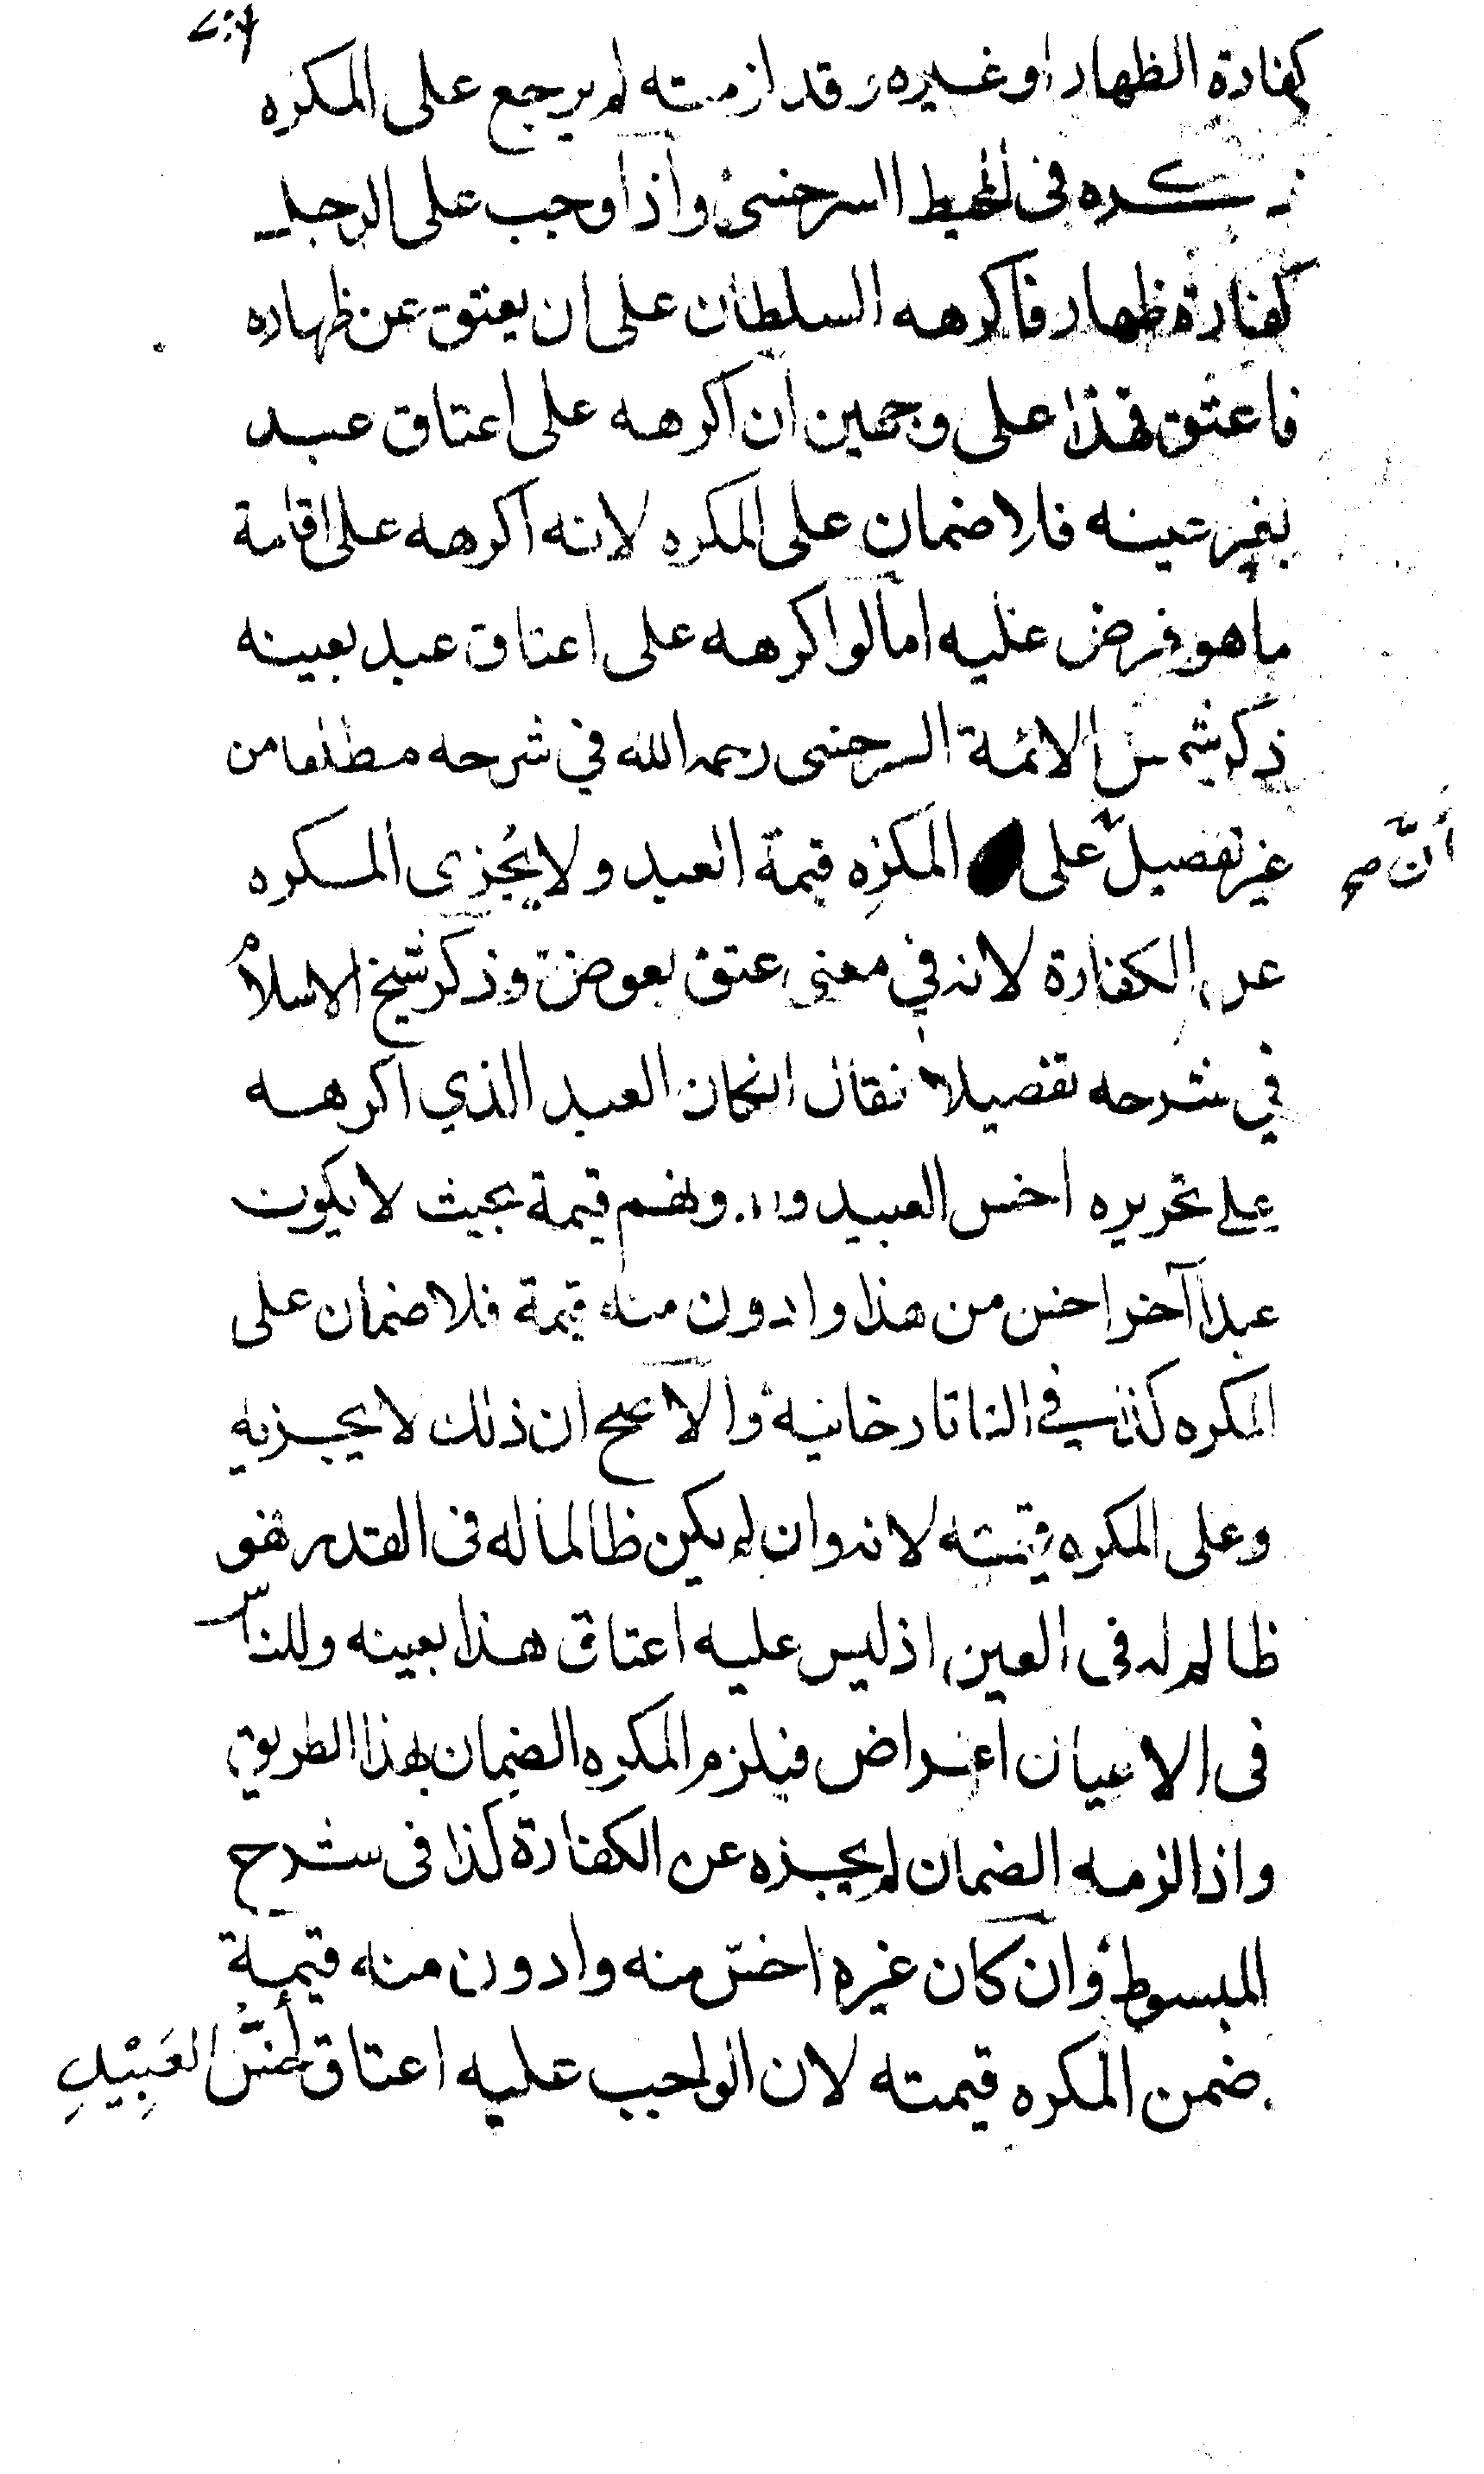 كفارة الظهار او غيره وقد لزمته لم يرجع على المكره
ذكره في المحيط السرخسي واذا وجب على الرجل
كفارة ظهار فاكرهه السلطان على ان يعتق عن ظهاره
فاعتق فهذا على وجهين ان اكرهه على اعتاق عبد
بغير عينه فلا ضمان على المكره لانه اكرهه على اقامة
ما هو فرض عليه اما لو اكرهه على اعتاق عبد بعينه
ذكر شمس الائمة السرخسى رحمه الله في شرحه مطلقا من
غير تفصيل على المكرِه قيمة العبد ولا يُجزى المكره
أنَّ صح
عن الكفارة لانه في معنى عتق بعوض وذكر شيخ الاسلام
في شرحه تفصيلا فقال ان كان العبد الذي اكرهه
على تحريره اخس العبيد وادونهم قيمة بحيث لا يكون
عبدا آخر اخس من هذا وادون منه قيمة فلا ضمان على
المكره كذا في التاتارخانية والاصح ان ذلك لا يجزيه
وعلى المكره قيمته لانه وان لم يكن ظالما له في القدر فهو
ظالم له في العين اذ ليس عليه اعتاق هذا بعينه وللناس
في الاعيان اغراض فيلزم المكره الضمان بهذا الطريق
واذا لزمه الضمان لم يجزه عن الكفارة كذا في شرح
المبسوط وان كان غيره اخسّ منه وادون منه قيمة
ضمن المكره قيمته لان الواجب عليه اعتاق أخسّ العَبِيْدِ